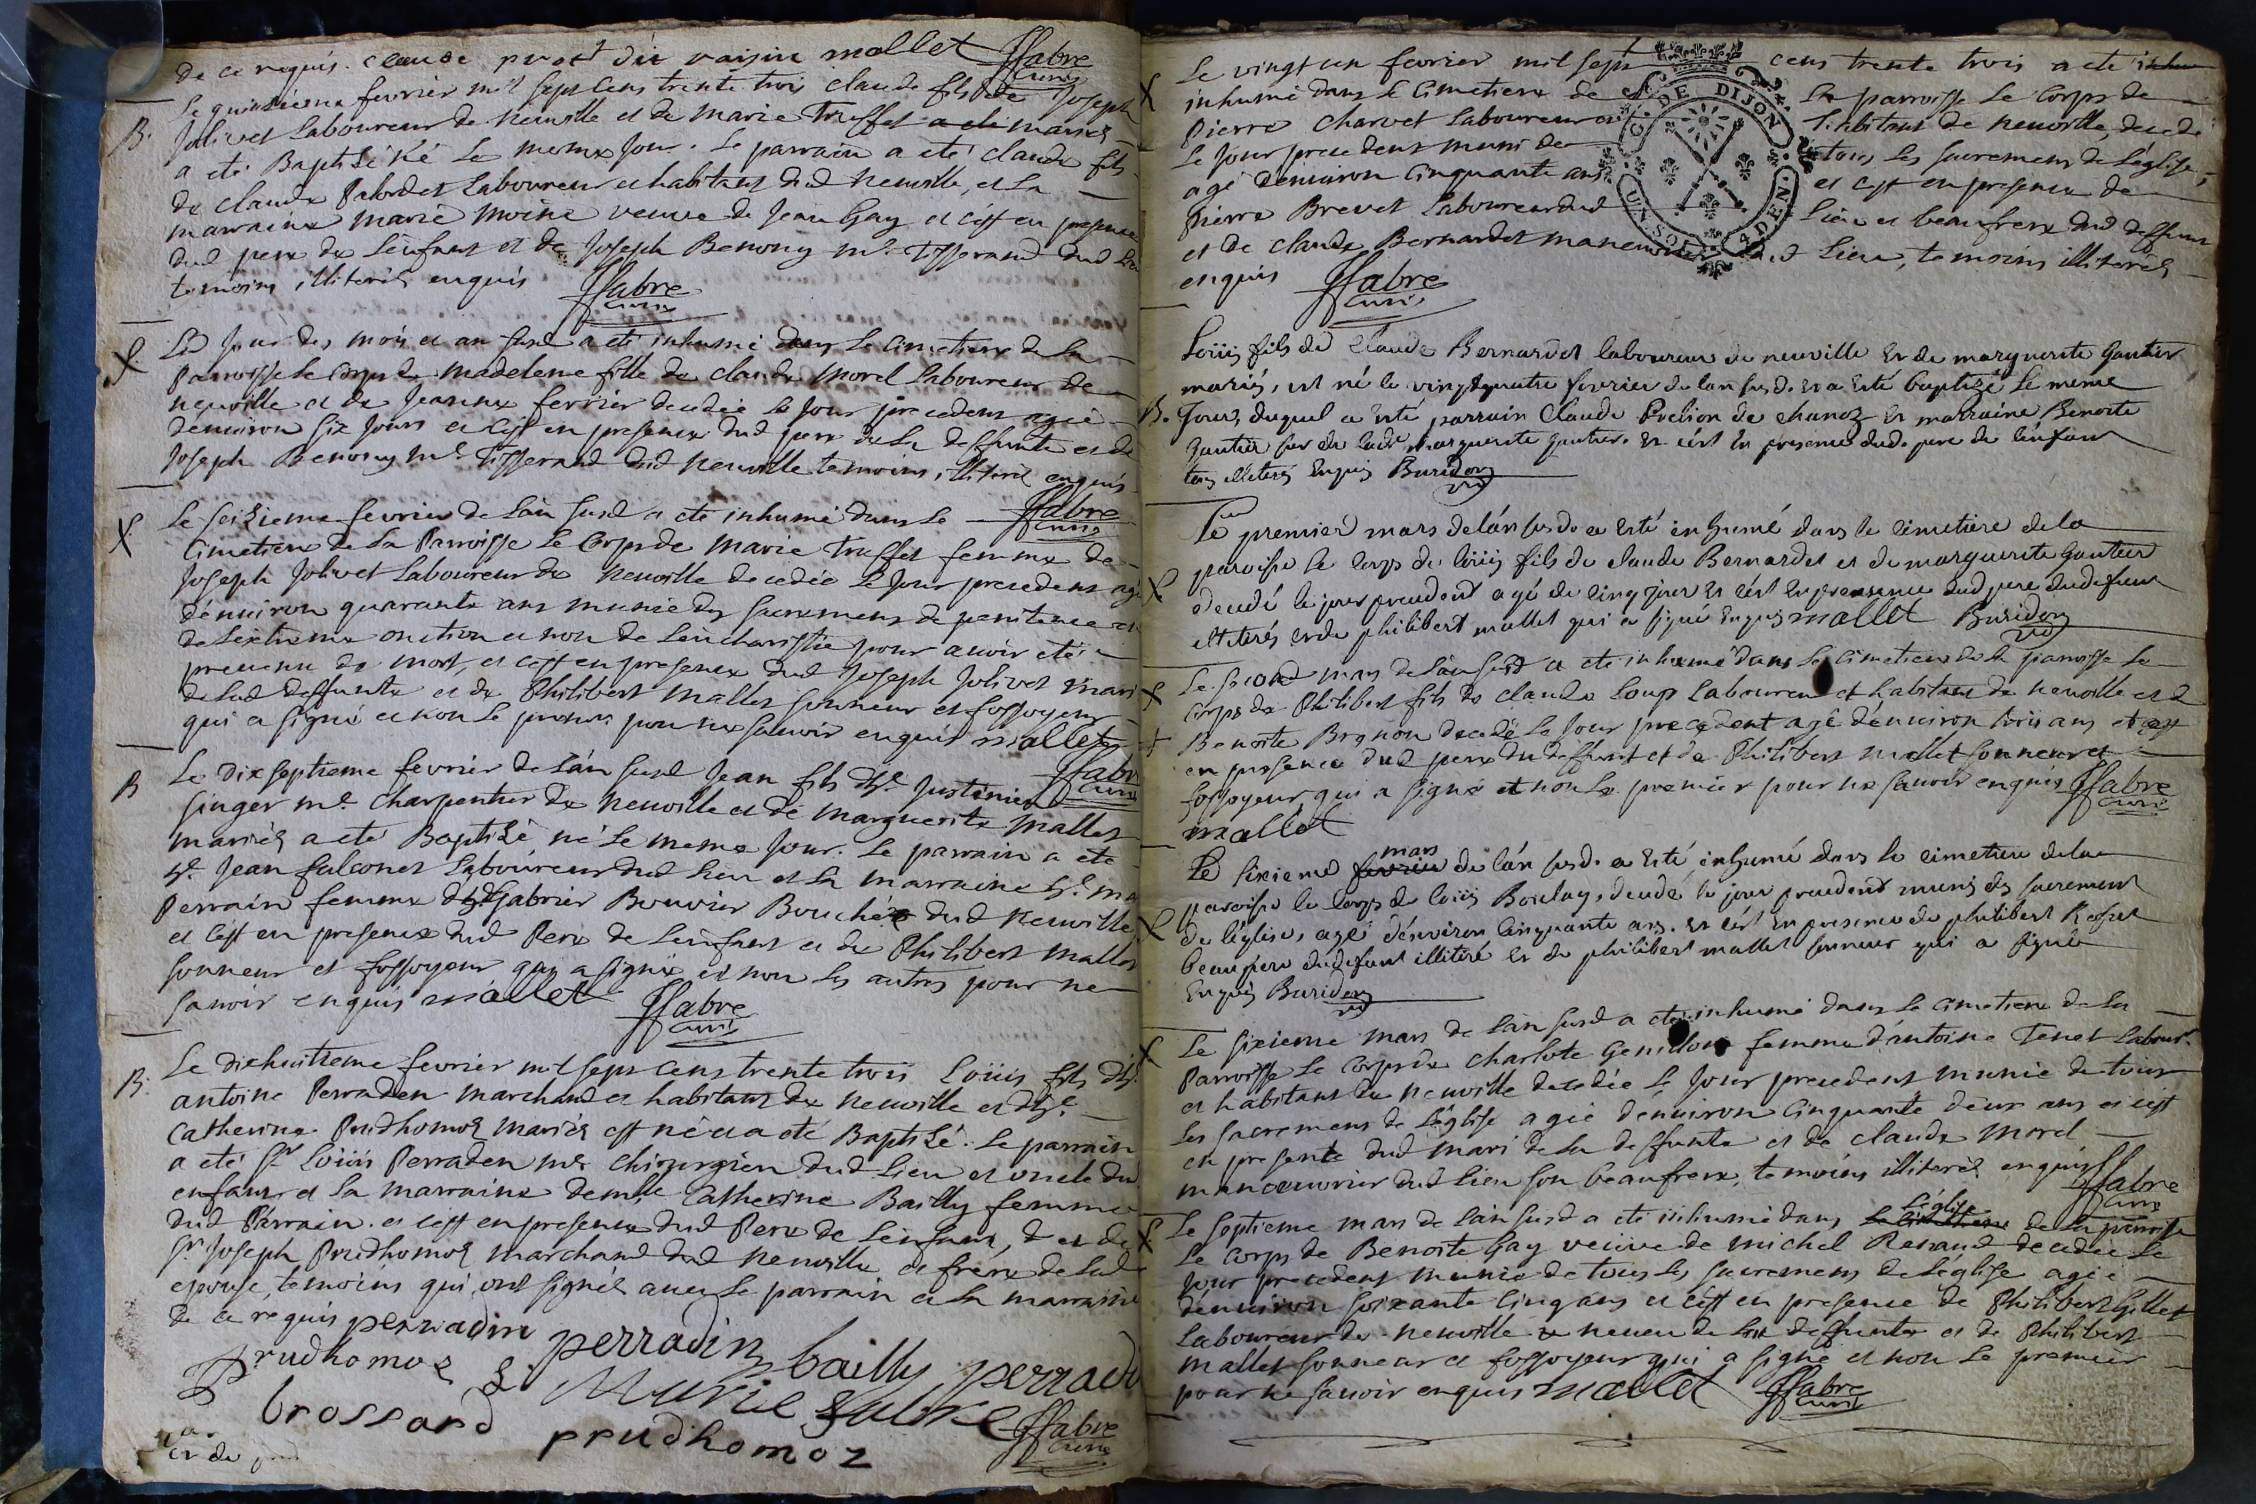 de ce requis. claude prost dit voisin mallet ffabre
curé
Le quinzieme fevrier mil sept cens trente trois claude fils de Joseph
B. Jolivet Laboureur de neuville et de marie Truffet a ete mariés
a eté Baptisé né Le meme Jour. Le parrain a eté claude fils
de claude Laboureur et habitant dud neuville, et La
marraine marie moine veuve de Jean Gay et c'est en presence
dud pere de L'enfant et de Joseph Benony me. Tisserand dud Lieu
temoins illiterés enquis ffabre
curé
Led Jour des mois et an susd a eté inhumé dans Le cimetiere de La
Parroisse Le corps de madeleine fille de claude morel Laboureur de
neuville et de Jeanne fevrier decedée Le Jour precedent agée
d'environ six Jours et c'est en presence dud pere de La deffunte et de
Joseph Benony me. Tisserand dud neuville temoins illiterés enquis
ffabre
curé
Le seizieme fevrier de L'an susd a eté inhumé dans Le
Cimetiere de La Parroisse Le Corps de marie Truffet femme de
Joseph Jolivet Laboureur de neuville decedée Le Jour precedent agée
d'environ quarante ans munie des sacremens de penitence et
de L'extreme onction et non de L'eucharistie pour avoir eté
prevenue de mort, et c'est en presence dud Joseph Jolivet mari
de Lad deffunte et de Philibert mallet sonneur et fossoyeur
qui a signé et non Le premier pour ne savoir enquis mallet
ffabre
curé
B Le dix septieme fevrier de L'an susd Jean fils d'h. Justinien
singer me. charpentier de neuville et de marguerite mallet
mariés a eté Baptisé né Le meme Jour. Le parrain a eté
h. Jean falconet Laboureur dud Lieu et La marraine h.
Perrain femme d'h Gabrier Bouvier Boucher dud neuville
et c'est en presence dud Pere de L'enfant et de Philibert mallet
sonneur et fossoyeur qui a signé et non les autres pour ne
savoir enquis mallet ffabre
curé
B. Le dixhuitieme fevrier mil sept cens trente trois Loüis fils d'h.
antoine Perraden marchand et habitant de neuville et d'h.
catherine Prudhomoz mariés est né et a eté Baptisé. Le parrain
a eté Sr Loüis Perraden me chirurgien dud Lieu et oncle du
enfant et La marraine demlle Catherine Bailly femme
dud Parrain. et c'est en presence dud Pere de L'enfant, et de
Sr Joseph Prudhomoz marchand dud neuville et frere de Lad
epouse, temoins qui ont signés avec Le parrain et La marraine
de ce requis perradin perradin bailly perradi
Prudhomoz
brossard prudhomoz ffabre
curé
Le vingt un fevrier mil sept cens trente trois a eté
inhumé dans Le Cimetiere de La parroisse Le Corps de
Pierre Charvet Laboureur et habitant de neuville, decedé
Le Jour precedent muni de tous Les sacremens de L'église,
agé d'environ Cinquante ans et c'est en presence de
Pierre Brevet Laboureur dud Lieu et beaufrere dud deffunt
et de claude Bernardet manouvrier dud Lieu, temoins illiterés
enquis ffabre
curé
DE DIJON
Loüis fils de Claude Bernardet laboureur de neuville et de marguerite Gautier
mariés, est né le vingtquatre fevrier de lan susd. et a esté baptizé le meme
B. Jour, duquel a esté parrain Claude de chanoz et marraine Benoite
Gautier soeur de lade marguerite gautier. et c'est en presence dud. pere de l'enfant
tous illiterés enquis Buridon
Le premier mars de l'an susd. a esté inhumé dans le cimetiere de la
paroisse le corps de loüis fils de claude Bernardet et de marguerite Gautier
decedé le jour precedent agé de cinq jours et c'est en presence dud pere dud defunt
illiterés et de philibert mallet qui a signé enquis mallet Buridon
Le second mars de L'an susd a eté inhumé dans Le cimetiere de La parroisse Le
Corps de Philibert fils de claude Loup Laboureur et habitant de neuville et de
Benoite Brenon decedé Le Jour precedent agé d'environ trois ans et c'est
en presence dud pere du deffunt et de Philibert mallet sonneur et
fossoyeur qui a signé et non Le premier pour ne savoir enquis ffabre
curé
mallet
mars
Le sixieme fevrier de l'an susd. a esté inhumé dans le cimetiere de la
paroisse le corps de loüis Boulay, decedé le jour precedent munis des sacrement
de l'église, agé d'environ cinquante ans. et c'est en presence de philibert
beaupere dud defunt illiteré et de philibert mallet sonneur qui a signé
Enquis Buridon
Le sixieme mars de L'an susd a eté inhumé dans Le Cimetiere de La
Parroisse Le Corps de Charlote Genillon femme d'antoine Tenet Labour.
et habitant de neuville decedée Le Jour precedent munie de tous
Les sacremens de L'église agée d'environ Cinquante deux ans et c'est
en presence dud mari de La deffunte et de claude morel
manouvrier dud Lieu son beaufrere, temoins illiterés enquis ffabre
curé
L'église
Le septieme mars de L'an susd a eté inhumé dans Le cimetiere de La parroisse
Le Corps de Benoite Gay veüve de michel Renaud decedée Le
Jour precedent munie de tous Les sacremens de L'église agée
d'environ soixante Cinq ans et c'est en presence de Philibert Gillet
Laboureur de neuville neveu de La deffunte et de Philibert
mallet sonneur et fossoyeur qui a signé et non Le premier
pour ne savoir enquis mallet ffabre
curé